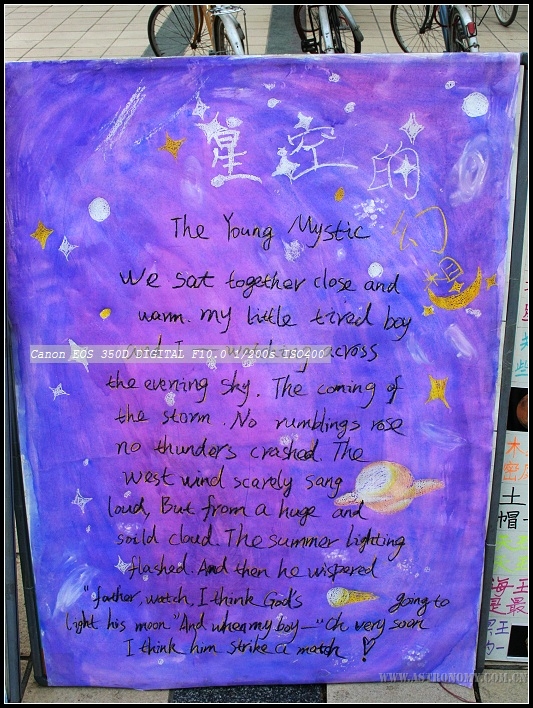 星空的
幻
The Young Mystic
We sat together close and
warm. my little tired boy
and I across
Canon EOS 350D DIGITAL F10.0 1/200s ISO400
the evening sky. The coming of
the storm. No rumblings rose
no thunders crashed. The
west wind scarely sang
loud, But from a huge and
soild cloud. The summer lighting
flashed. And then he wispered
"father, watch, I think God's going to
light his moon." And when my boy—"Oh very soon
I think him strike a match !
木
密
土
帽一
海王
是最
WWW.ASTRONOMY.COM.CN